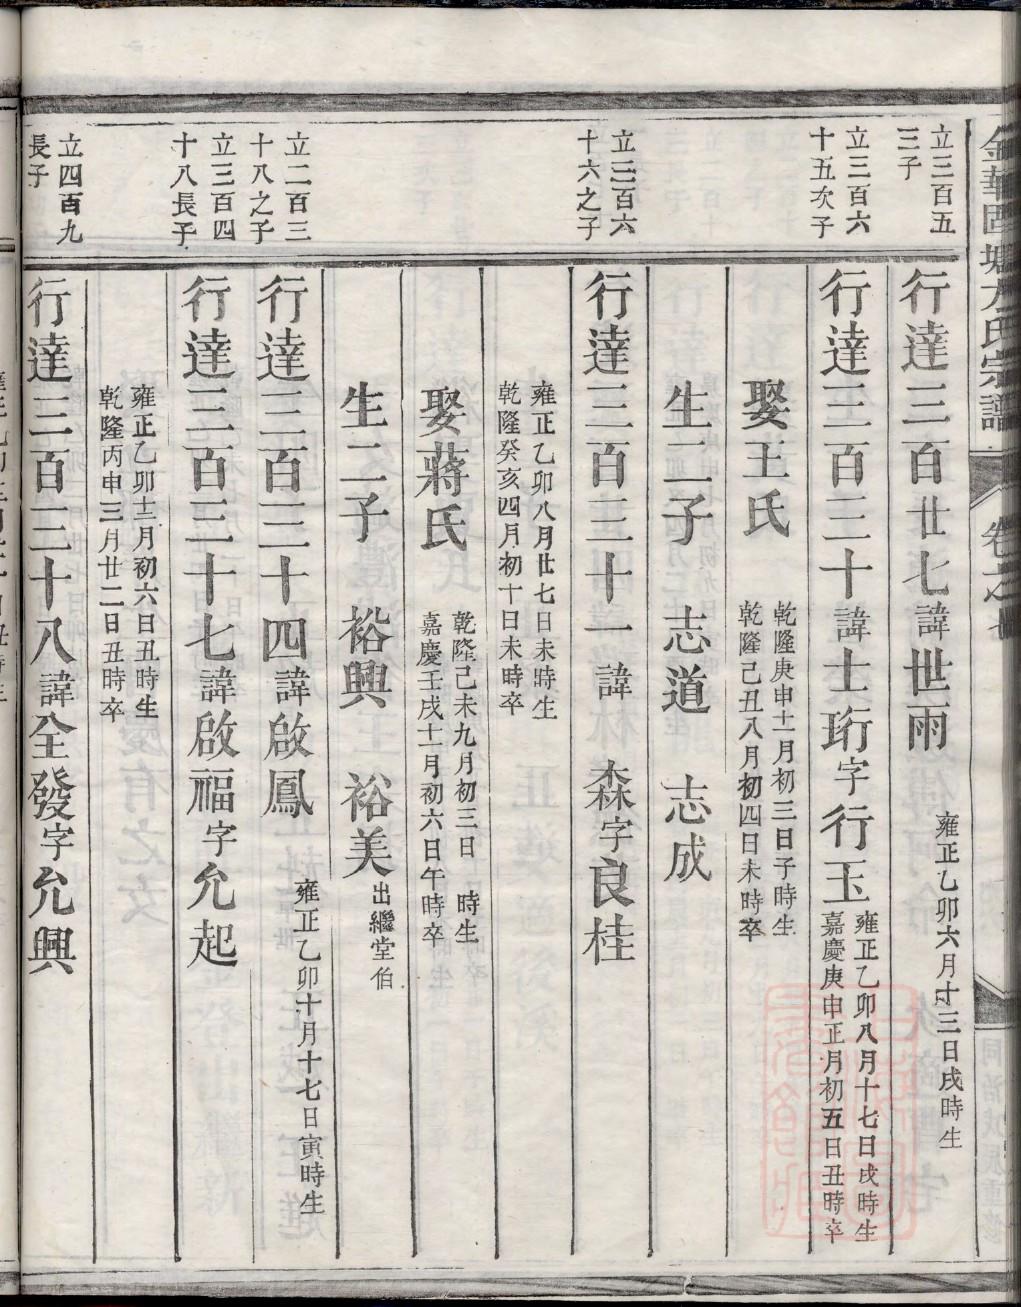 金華固塘方氏宗譜
卷之
同治戊辰重修
立三百五
三子
行達三百廿七諱世雨
雍正乙卯六月十三日戌時生
立三百六
十五次子
行達三百三十諱士珩字行玉
雍正乙卯八月十七日戌時生
嘉慶庚申正月初五日丑時卒
娶王氏
乾隆庚申十一月初三日子時生
乾隆己丑八月初四日未時卒
生二子 志道 志成
立三百六
十六之子
行達三百三十一諱 森字良桂
雍正乙卯八月廿七日未時生
乾隆癸亥四月初十日未時卒
娶蔣氏
乾隆己未九月初三日 時生
嘉慶壬戌十一月初六日午時卒
生二子 裕興 裕美
出繼堂伯
立二百三
十八之子
行達三百三十四諱啟鳳
雍正乙卯十月十七日寅時生
立三百四
十八長子
行達三百三十七諱啟福字允起
雍正乙卯十二月初六日丑時生
乾隆丙申三月廿二日丑時卒
立四百九
長子
行達三百三十八諱全發字允興